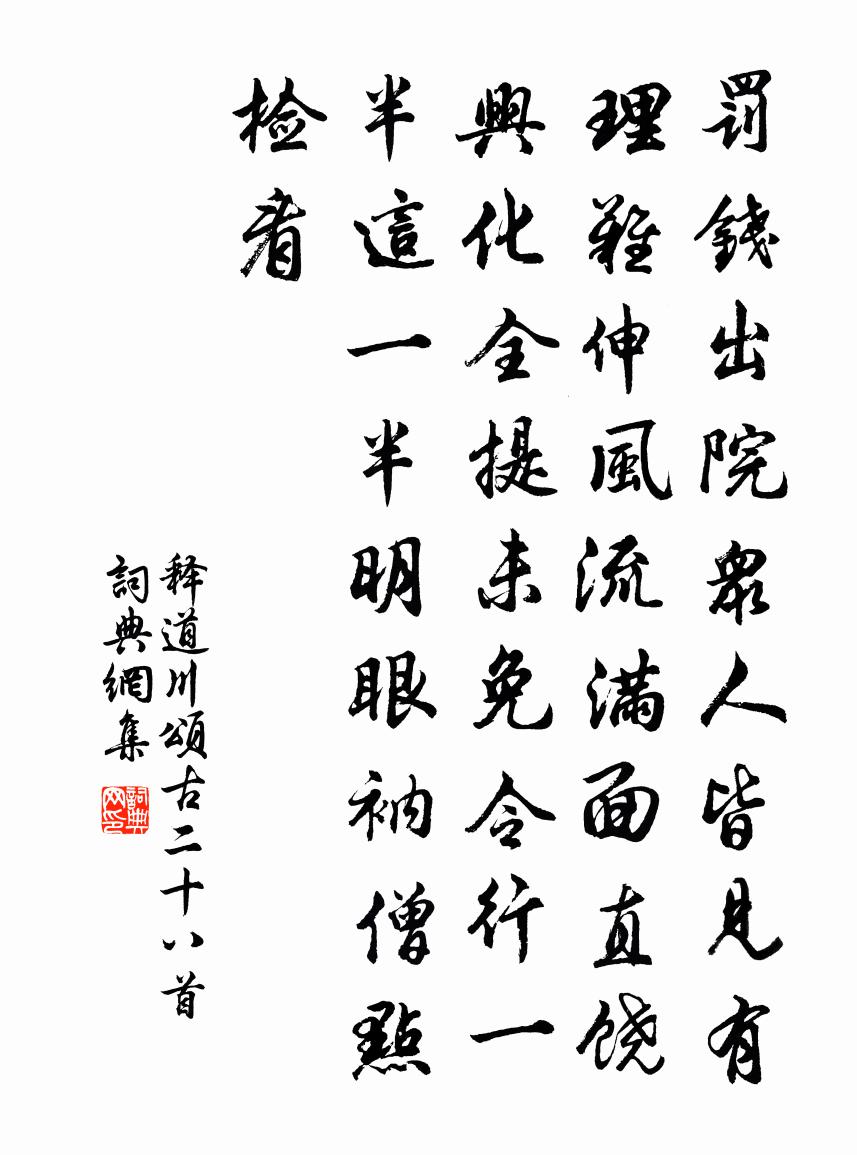 罰錢出院眾人皆見有
理難伸風流滿面直饒
興化全提未免令行一
半這一半明眼衲僧點
檢看
释道川頌古二十八首
詞典網集
詞典网印